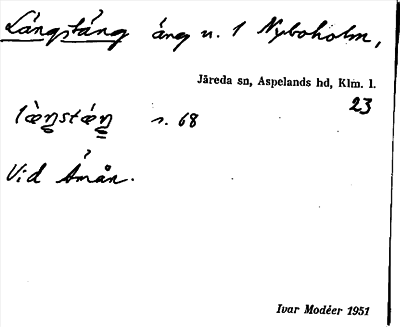 Långstång äng n. 1 Nyboholm,
Järeda sn, Aspelands hd, Klm. l.
23
n. 68
Vid Åmån.
Ivar Modéer 1951